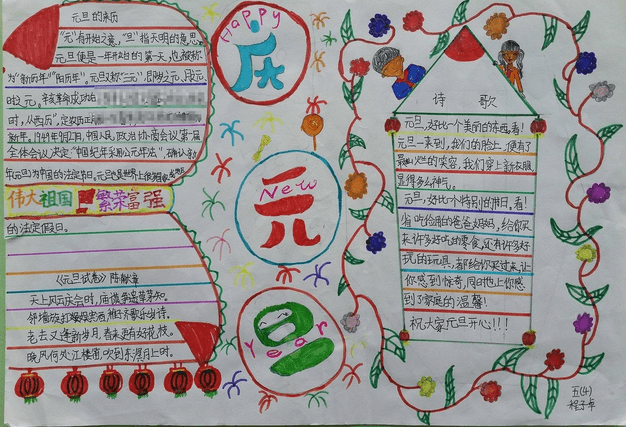 元旦的来历
"元"有开始之意，"旦"指天明的意思。
元旦便是一年开始的第一天，也被称
为"新历年""阳历年"。元旦又称"三元"，即岁之元、月之元、
时之元。辛亥革命成功
时，从西历"，定
新年。1949年9月27日，中国人民政治协商会议第一届
全体会议决定"中国纪年采用公元年法"，确认新
年(元旦)为中国的法定节日。元旦
伟大祖国 繁荣富强
的法定假日。
《元旦试卷》陈献章
天上风云庆会时，庙谟争遗草茅知。
邻墙旋打娱宾酒，稚子齐歌乐岁诗。
老去又逢新岁月，春来更有好花枝。
晚风何处江楼笛，吹到东溟月上时。
Happy
庆
New
元
旦
Year
诗 歌
元旦，好比一个美丽的东西，看！
元旦一来到，我们的脸上，便有了
最灿烂的笑容，我们穿上新衣服，
显得多么神气。
元旦，好比一个特别的节日，看！
省吃俭用的爸爸妈妈，给你买
来许多好吃的零食，还有许多好
玩的玩具，都给你买过来，让
你感到惊奇，同时也让你感
到了家庭的温馨！
祝大家元旦开心!!!
五(4)
程子卓